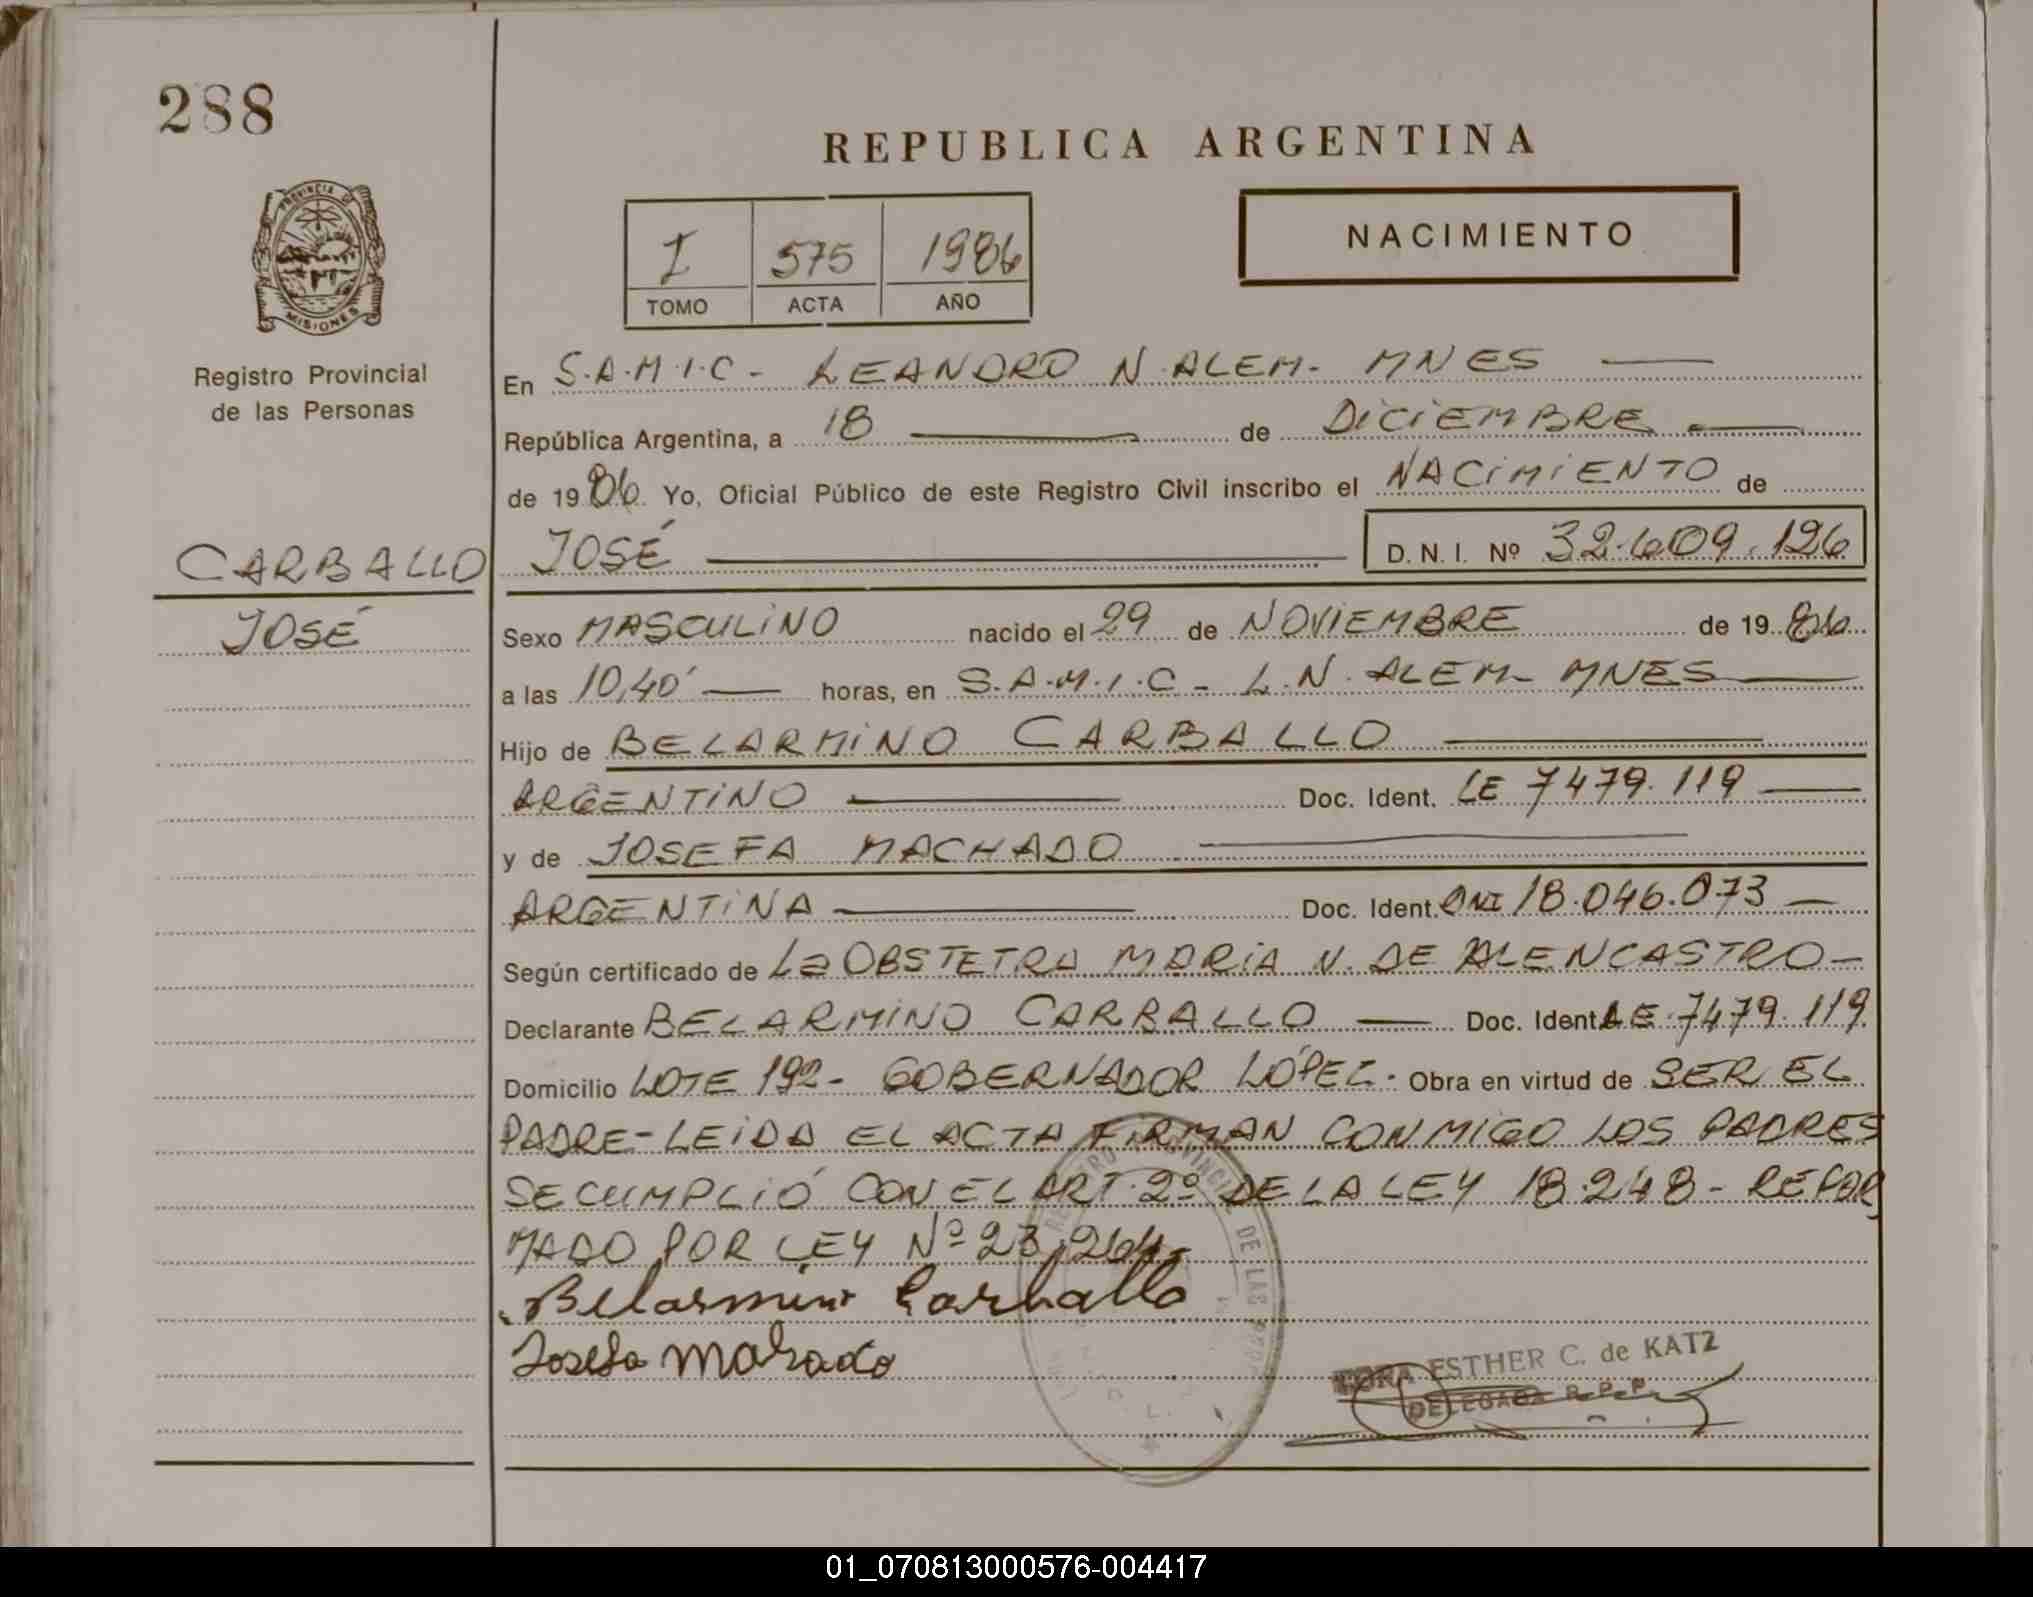 288
REPUBLICA ARGENTINA
PROVINCIA DE
MISIONES
Registro Provincial
de las Personas
I 575 1986
TOMO ACTA AÑO
NACIMIENTO
En S.A.M.I.C - LEANDRO N. ALEM - MNES
República Argentina, a 18 de DICIEMBRE
de 1986. Yo, Oficial Público de este Registro Civil inscribo el NACIMIENTO de
CARBALLO
JOSÉ
JOSÉ D.N.I. Nº 32.609.126
Sexo MASCULINO nacido el 29 de NOVIEMBRE de 1986
a las 10,40' horas, en S.A.M.I.C - L.N. ALEM - MNES
Hijo de BELARMINO CARBALLO
ARGENTINO Doc. Ident. LE 7479.119
y de JOSEFA MACHADO
ARGENTINA Doc. Ident. DNI 18.046.073
Según certificado de La OBSTETRA MARIA N. DE ALENCASTRO -
Declarante BELARMINO CARBALLO Doc. Ident. LE. 7479.119
Domicilio LOTE 192 - GOBERNADOR LÓPEZ. Obra en virtud de SER EL
PADRE - LEIDA EL ACTA FIRMAN CONMIGO LOS PADRES
SE CUMPLIÓ CON EL ART. 2º DE LA LEY 18.248 - REFOR
MADO POR LEY Nº 23.264 -
Belarmino Carballo
Josefa Machado
REGISTRO PROVINCIAL DE LAS
ESTHER C. de KATZ
DELEGADA R. P. P.
01_070813000576-004417